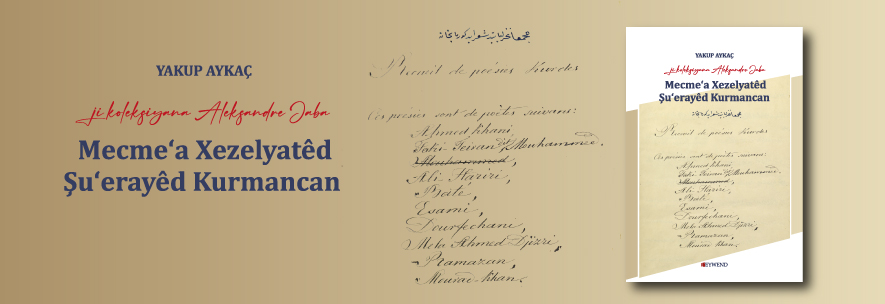 YAKUP AYKAÇ
ji koleksiyana Aleksandre Jaba
Mecme‘a Xezelyatêd
Şu‘erayêd Kurmancan
Recueil de poésies Kurdes
Ces poésies sont de poètes suivans:
Ahmed Khani,
Faki Teiran dit Muhammed.
Muhammed,
Ali Hariri,
Baté,
Esami,
Mela Ahmed Djizri,
Ramazan,
Mourad Khan.
YAKUP AYKAÇ
ji koleksiyana Aleksandre Jaba
Mecme‘a Xezelyatêd
Şu‘erayêd Kurmancan
Recueil de poésies Kurdes
Ces poésies sont de poètes suivans:
Ahmed Khani,
Faki Teiran dit Muhammed.
Muhammed,
Ali Hariri,
Baté,
Esami,
Mela Ahmed Djizri,
Ramazan,
Mourad Khan.
PEYWEND